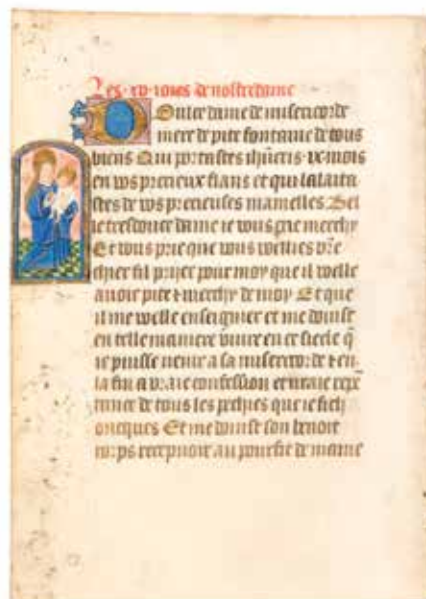 Les xv ioies de nostre dame
Doulce dame de misericorde
mere de pite fontaine de tous
biens Qui portastes ihūcris ix mois
en vos precieux flans et qui lalaita
stes de vos precieuses mamelles Bel
le tresdouce dame ie vous prie merchy
Et vous prie que vous vellies vr̄e
chier fil prijer pour moy que il welle
auoir pite ⁊ merchy de moy Et que
il me welle enseignier et me doinst
en telle maniere viure en ce siecle q̄
ie puisse venir a sa misericorde ⁊ en
la fin a vraie confession et vraie repē
tance de tous les pechies que ie fich
oncques Et me doinst son benoit
corps recepuoir au pourfit de mame